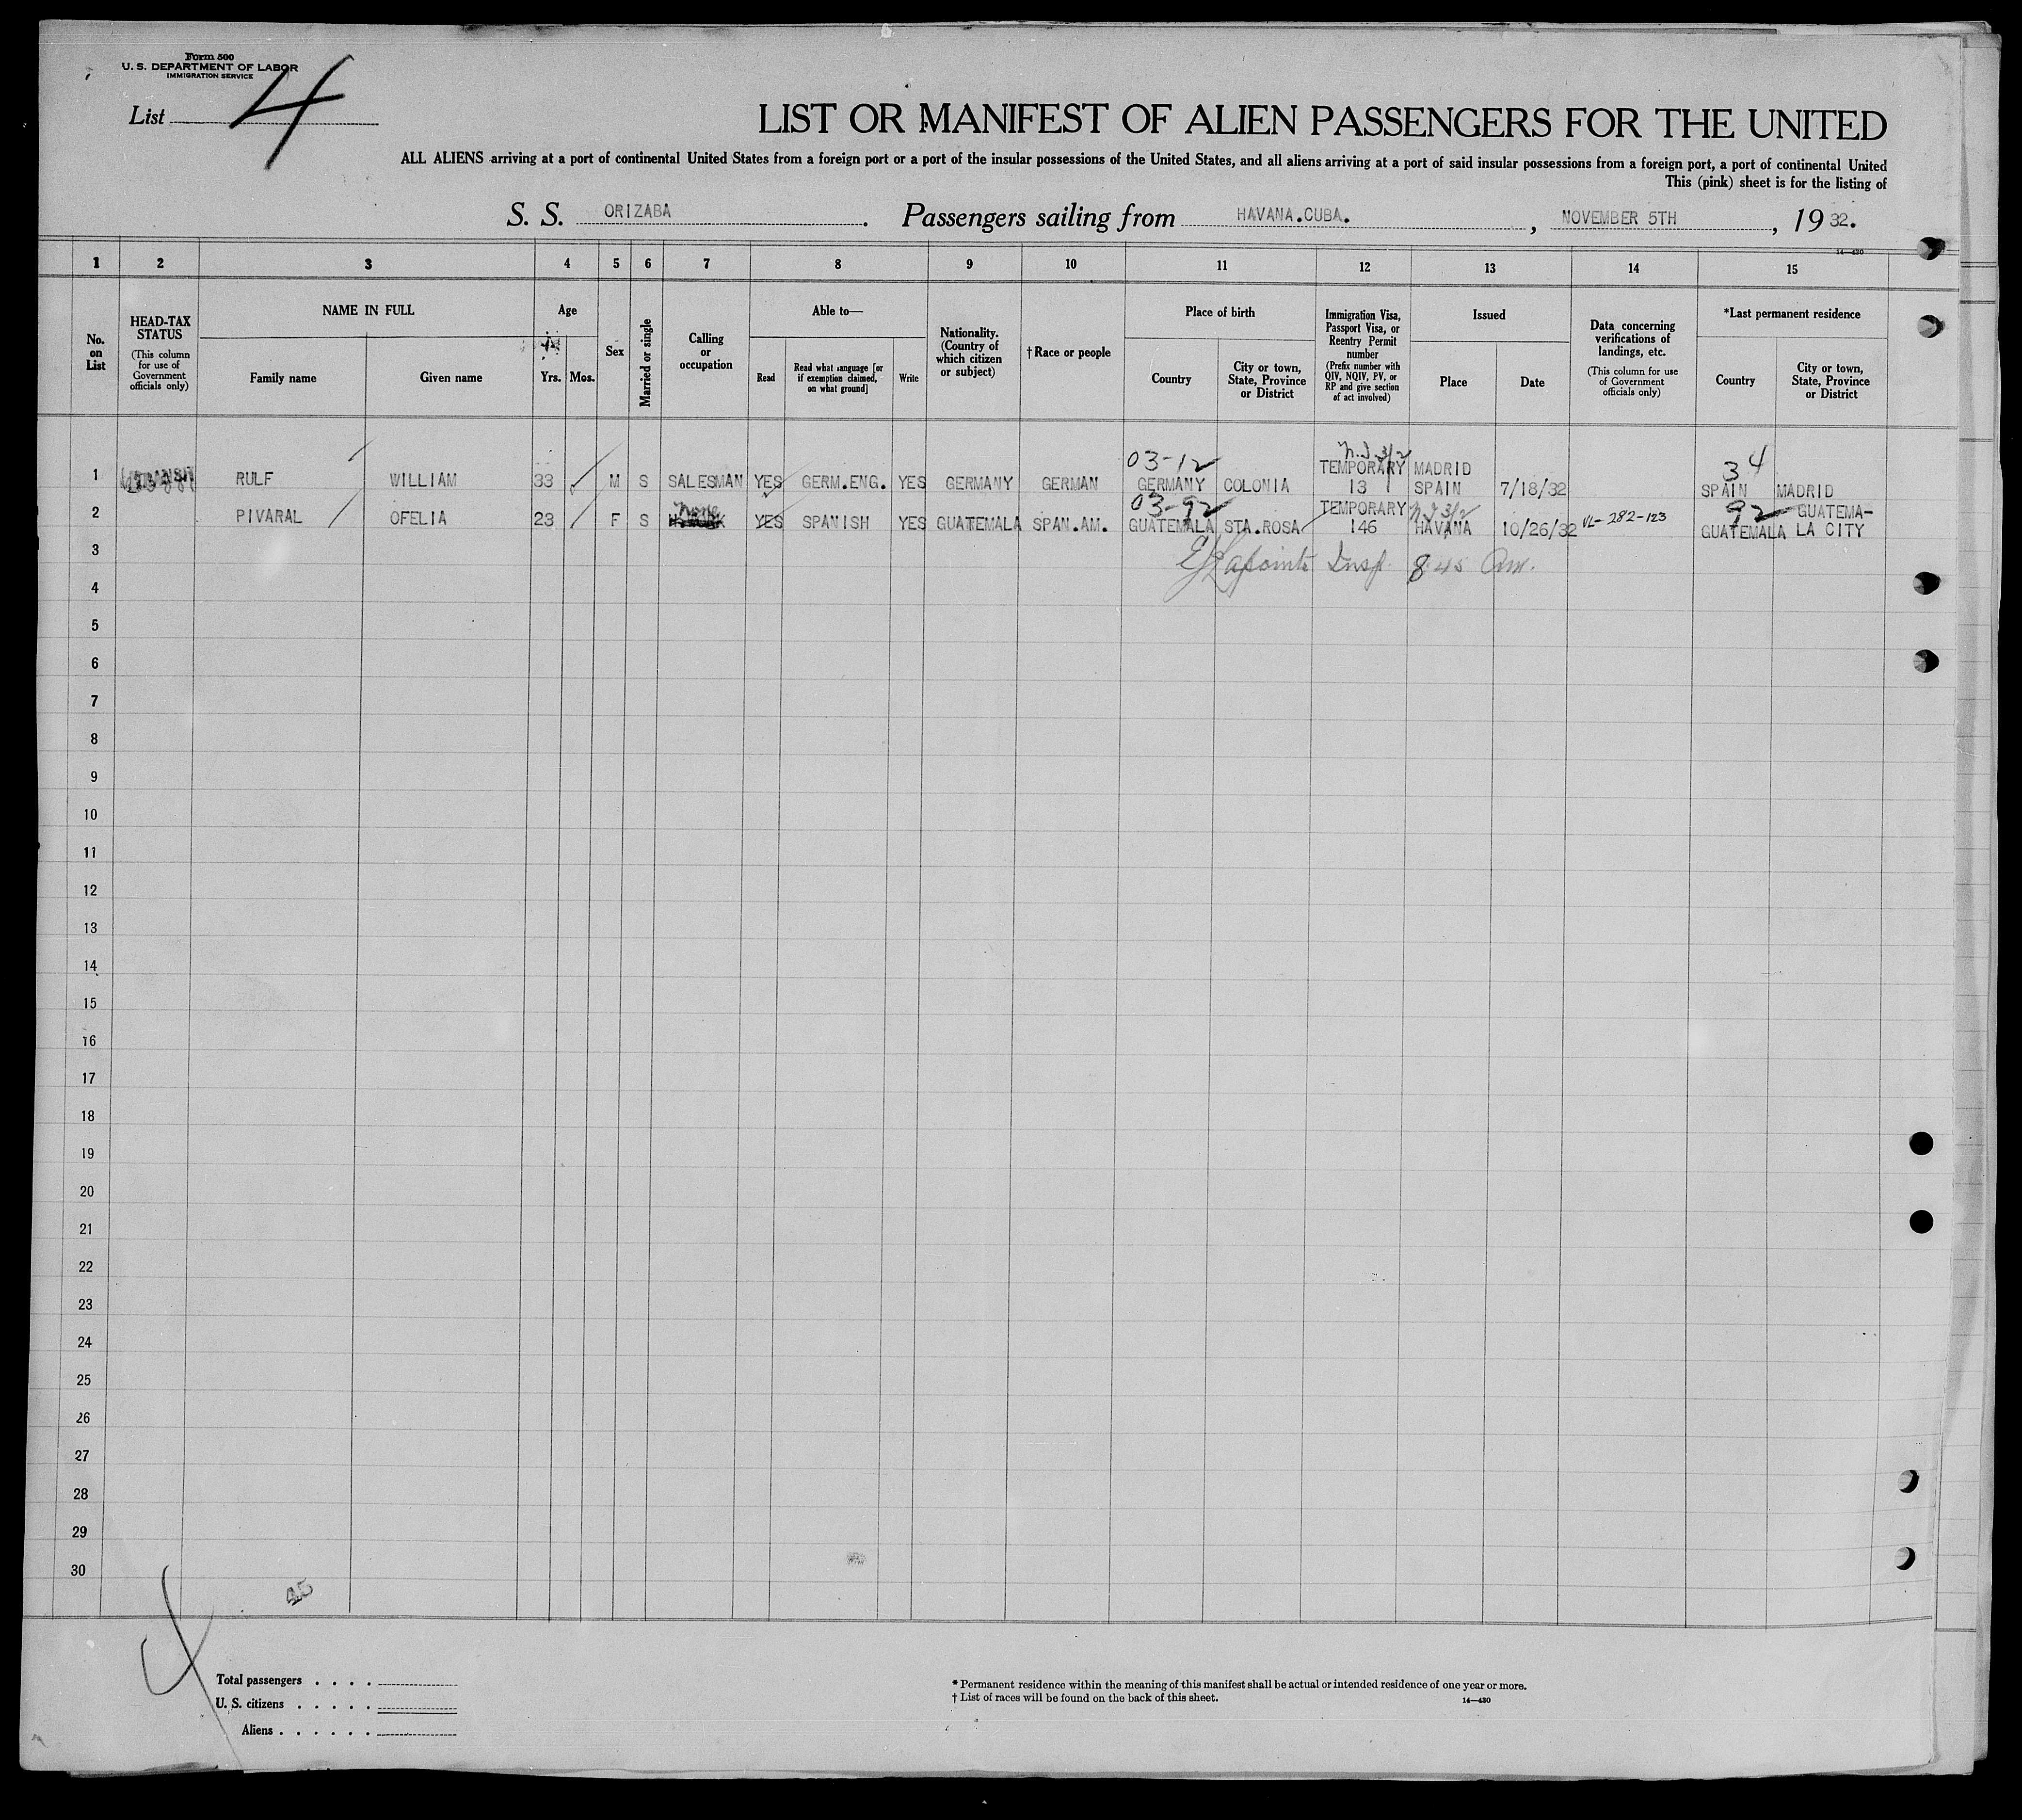 Form 500
U. S. DEPARTMENT OF LABOR
IMMIGRATION SERVICE
List 4
LIST OR MANIFEST OF ALIEN PASSENGERS FOR THE UNITED
ALL ALIENS arriving at a port of continental United States from a foreign port or a port of the insular possessions of the United States, and all aliens arriving at a port of said insular possessions from a foreign port, a port of continental United
This (pink) sheet is for the listing of
S. S. ORIZABA. Passengers sailing from HAVANA.CUBA. , NOVEMBER 5TH , 19 32.
14—430
1 2 3 4 5 6 7 8 9 10 11 12 13 14 15
No. on List
HEAD-TAX STATUS
(This column for use of Government officials only)
NAME IN FULL
Family name
Given name
Age
Yrs. Mos.
Sex
Married or single
Calling or occupation
Able to—
Read
Read what language [or if exemption claimed, on what ground]
Write
Nationality. (Country of which citizen or subject)
†Race or people
Place of birth
Country
City or town, State, Province or District
Immigration Visa, Passport Visa, or Reentry Permit number
(Prefix number with QIV, NQIV, PV, or RP and give section of act involved)
Issued
Place
Date
Data concerning verifications of landings, etc.
(This column for use of Government officials only)
*Last permanent residence
Country
City or town, State, Province or District
03-12 3 4
1 RULF WILLIAM 33 M S SALESMAN YES GERM.ENG. YES GERMANY GERMAN GERMANY COLONIA TEMPORARY 13 MADRID SPAIN 7/18/32 SPAIN MADRID
None 03-92 92
2 PIVARAL OFELIA 23 F S YES SPANISH YES GUATEMALA SPAN.AM. GUATEMALA STA.ROSA TEMPORARY 146 HAVANA 10/26/32 VL-282-123 GUATEMALA GUATEMA-LA CITY
3 EJ Lapointe Insp. 8 45 Am.
4
5
6
7
8
9
10
11
12
13
14
15
16
17
18
19
20
21
22
23
24
25
26
27
28
29
30
Total passengers
U. S. citizens
Aliens
* Permanent residence within the meaning of this manifest shall be actual or intended residence of one year or more.
† List of races will be found on the back of this sheet.
14—430